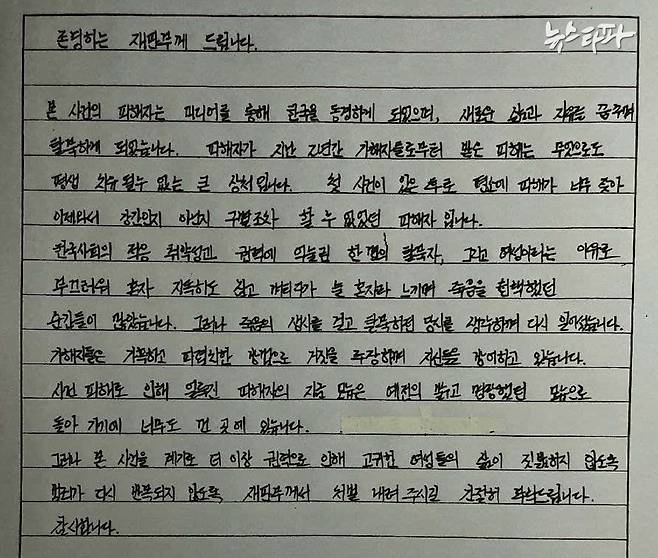 뉴스타파
존경하는 재판부께 드립니다.
본 사건의 피해자는 미디어를 통해 한국을 동경하게 되었으며, 새로운 삶과 자유를 꿈꾸며
탈북하게 되었습니다. 피해자가 지난 2년간 가해자들로부터 받은 피해는 무엇으로도
평생 치유될수 없는 큰 상처입니다. 첫 사건이 있은 후로 평소에 피해가 너무 잦아
이제와서 강간인지 아닌지 구별조차 할 수 없었던 피해자 입니다.
한국사회의 적응 취약성과 권력에 억눌린 한 명의 탈북자, 그리고 여성이라는 이유로
부끄러워 혼자 자책하고 참고 늘 혼자라 느끼며 죽음을 선택했던
순간들이 많았습니다. 그러나 죽음의 생사를 걸고 탈북하던 당시를 생각하며 다시 일어섰습니다.
가해자들은 거룩하고 파렴치한 거짓을 주장하며 자신들을 강이하고 있습니다.
사건 피해로 인해 얼룩진 피해자의 지금 모습은 예전의 밝고 명랑했던 모습으로
돌아 가기에 너무도 먼 곳에 와있습니다.
그러나 본 사건을 계기로 더 이상 권력으로 인해 고귀한 여성들의 삶이 짓밟히지 않도록
다시 반복되지 않도록, 재판부께서 처벌 내려 주시길 간절히 부탁드립니다.
감사합니다.